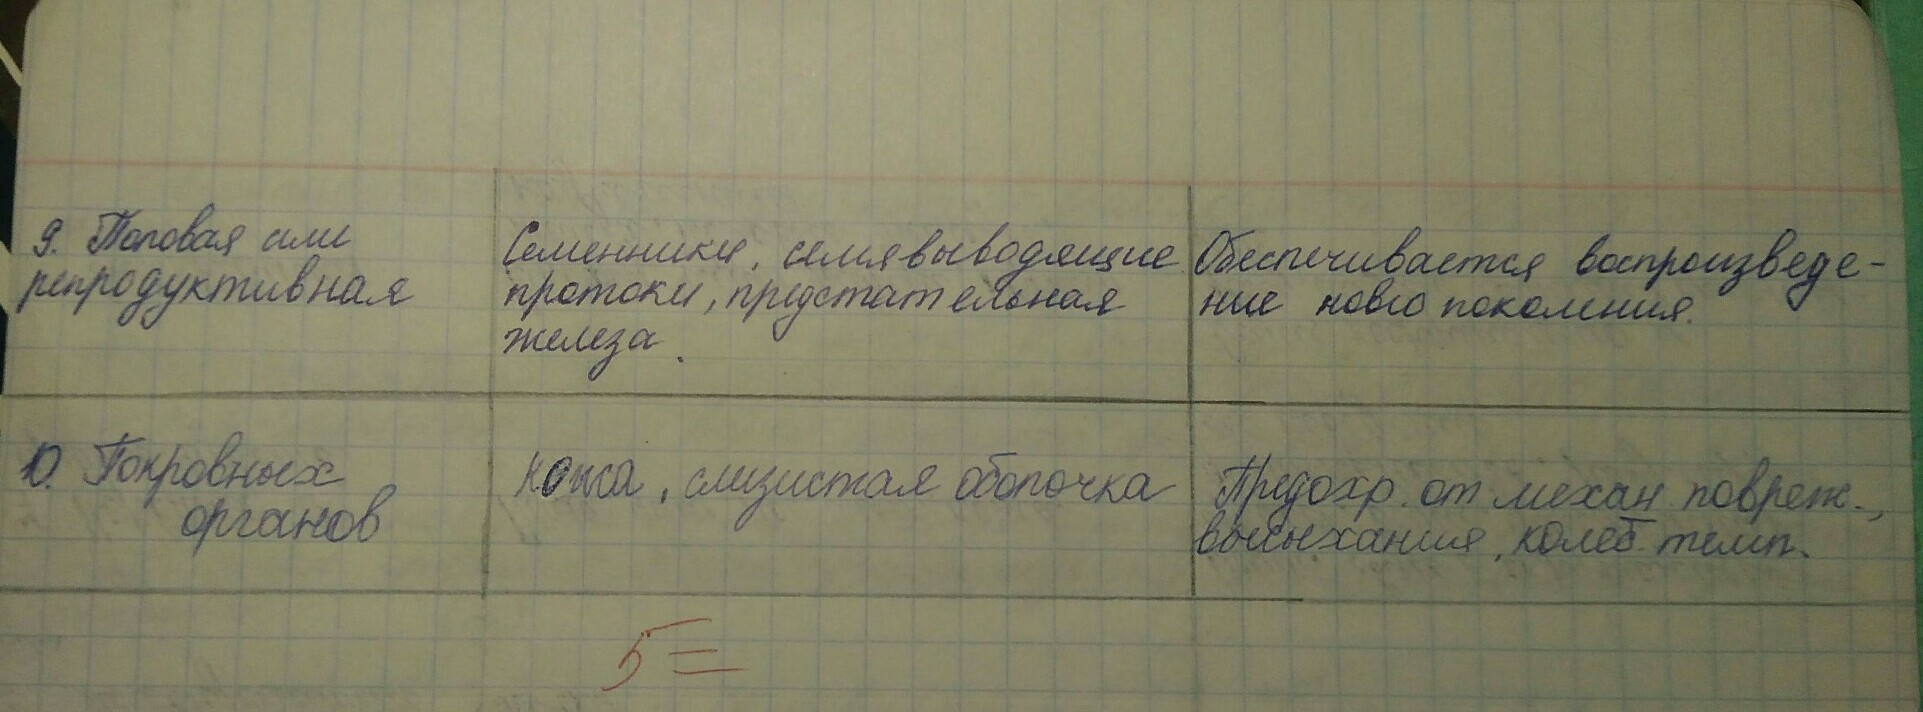 9. Половая или
репродуктивная
Семенники, семявыводящие
протоки, предстательная
железа.
Обеспечивается воспроизведе-
ние нового поколения.
10. Покровных
органов
Кожа, слизистая оболочка
Предохр. от механ повреж.,
высыхания, колеб. темп.
5=